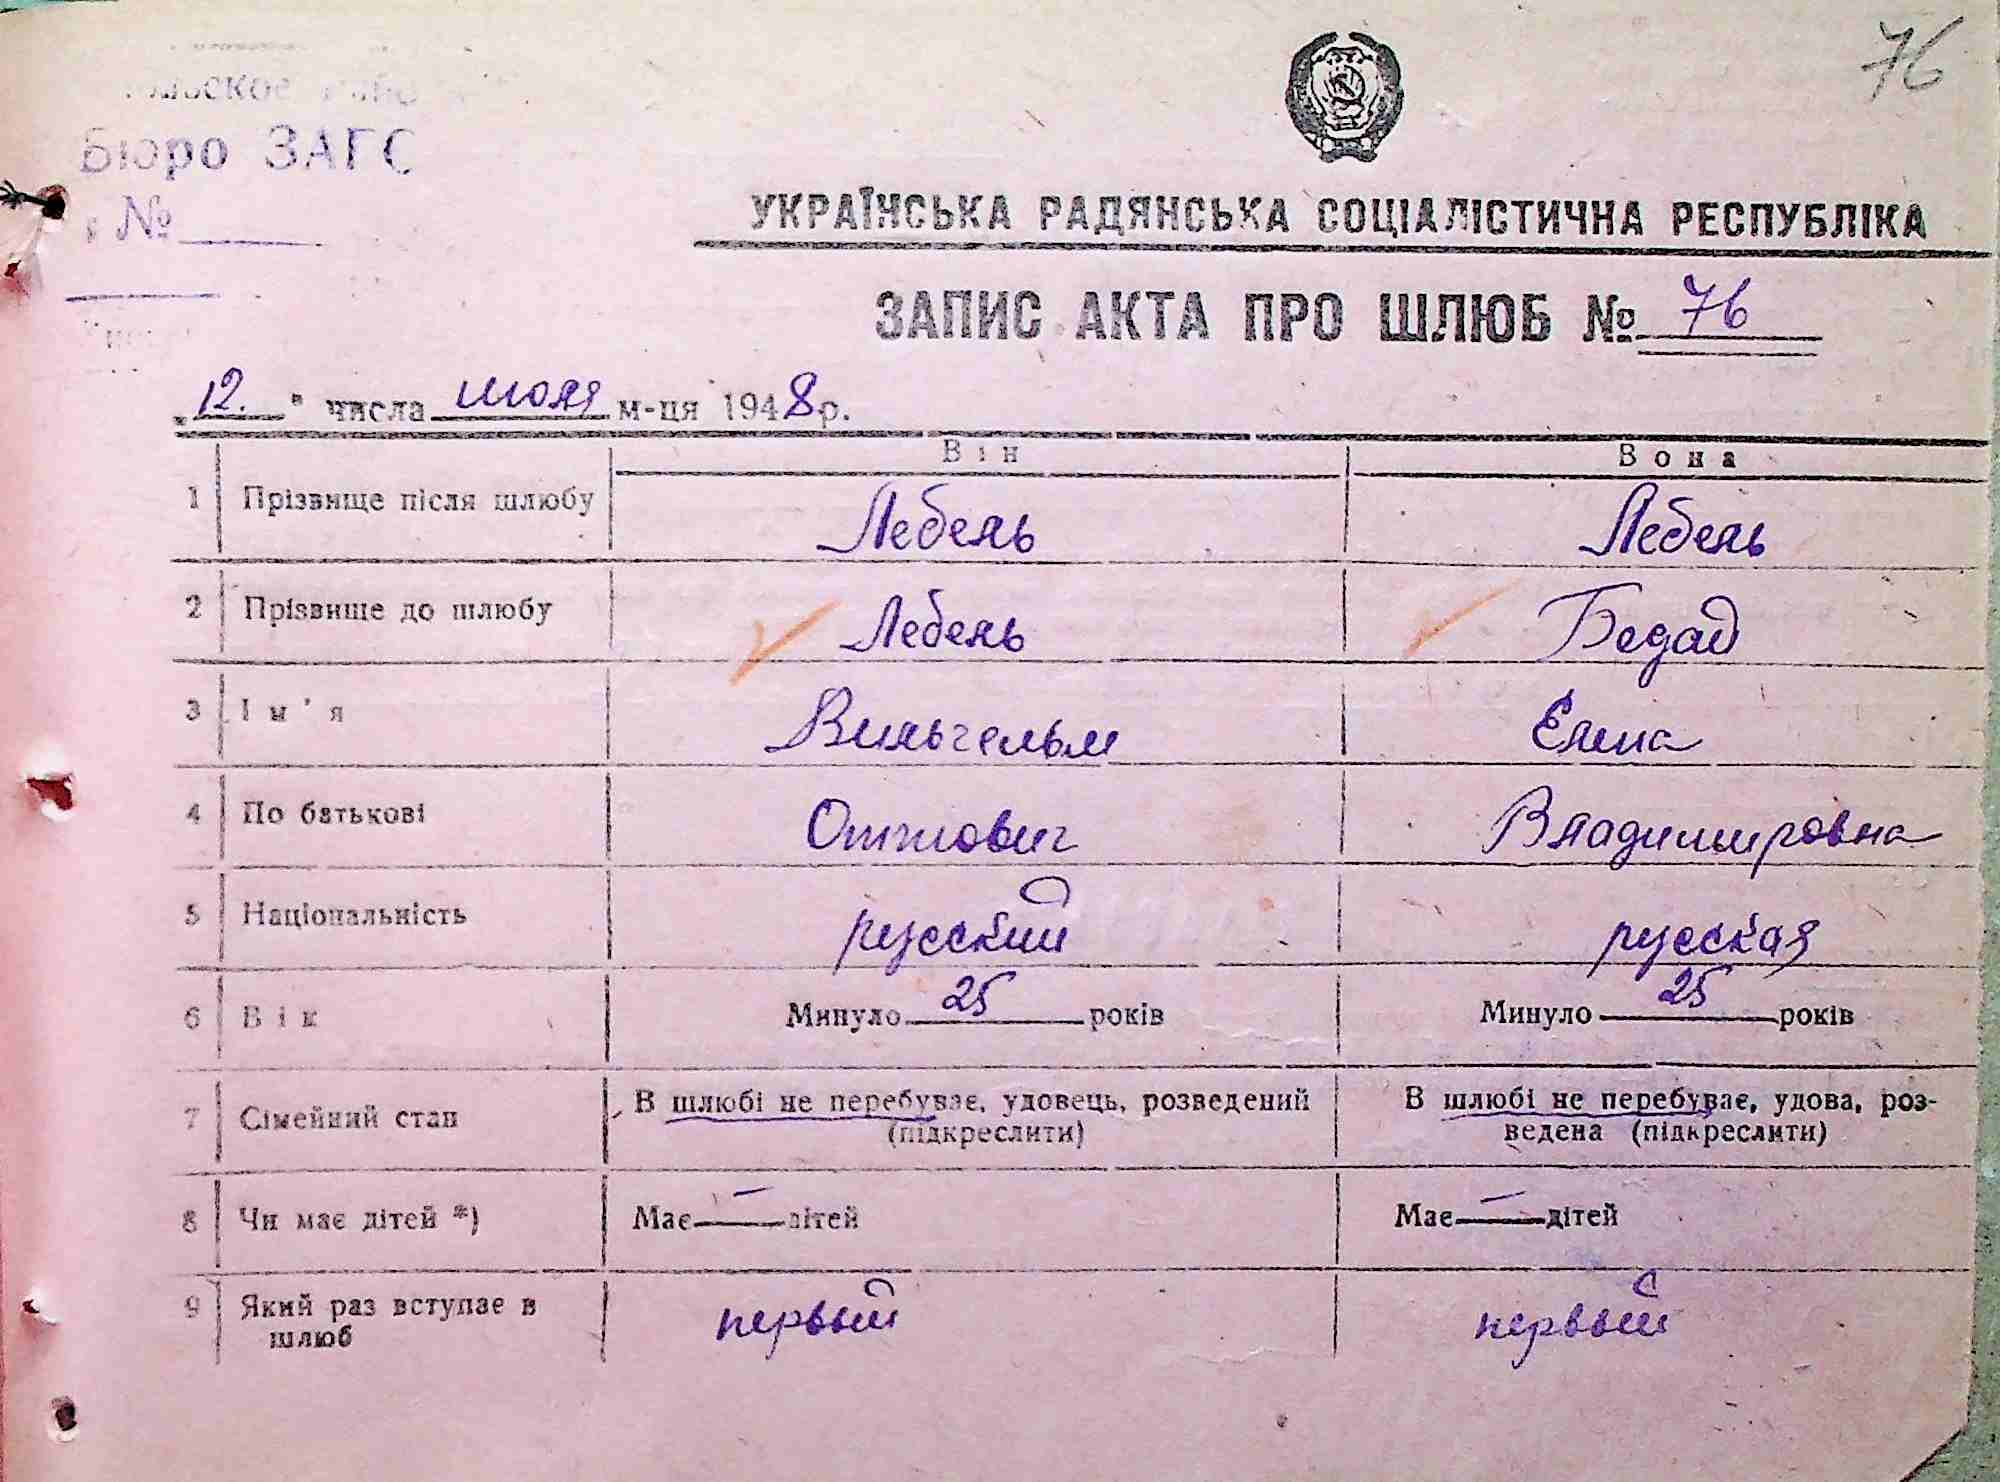 76
Бюро ЗАГС
№
УКРАЇНСЬКА РАДЯНСЬКА СОЦІАЛІСТИЧНА РЕСПУБЛІКА
ЗАПИС АКТА ПРО ШЛЮБ № 76
„12." числа июля м-ця 1948 р.
Він Вона
1 Прізвище після шлюбу Лебель Лебель
2 Прізвище до шлюбу Лебель Бедад
3 Ім'я Вильгельм Елена
4 По батькові Оттович Владимировна
5 Національність русский русская
6 Вік Минуло 25 років Минуло 25 років
7 Сімейний стан В шлюбі не перебуває, удовець, розведений В шлюбі не перебуває, удова, роз-
(підкреслити) ведена (підкреслити)
8 Чи має дітей *) Має — дітей Має — дітей
9 Який раз вступає в первый первый
шлюб